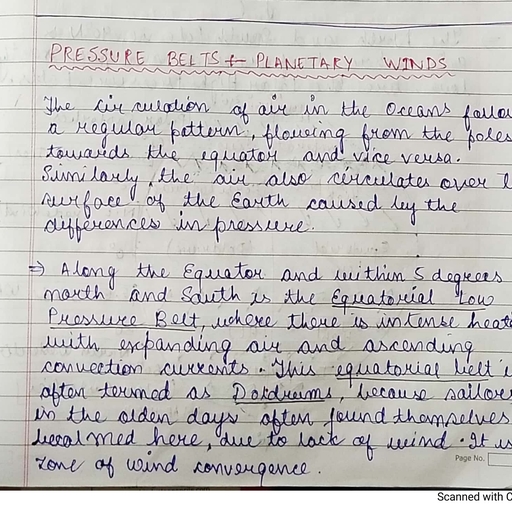 PRESSURE BELTS & PLANETARY WINDS
The circulation of air in the Oceans follow
a regular pattern, flowing from the poles
towards the equator and vice versa.
Similarly, the air also circulates over t
surface of the Earth caused by the
differences in pressure.
⇒ Along the Equator and within 5 degrees
north and South is the Equatorial Low
Pressure Belt, where there is intense heat
with expanding air and ascending
convection currents. This equatorial belt i
often termed as Doldrums, because sailors
in the olden days often found themselves
becalmed here, due to lack of wind. It is
zone of wind convergence.
Page No.
Scanned with C